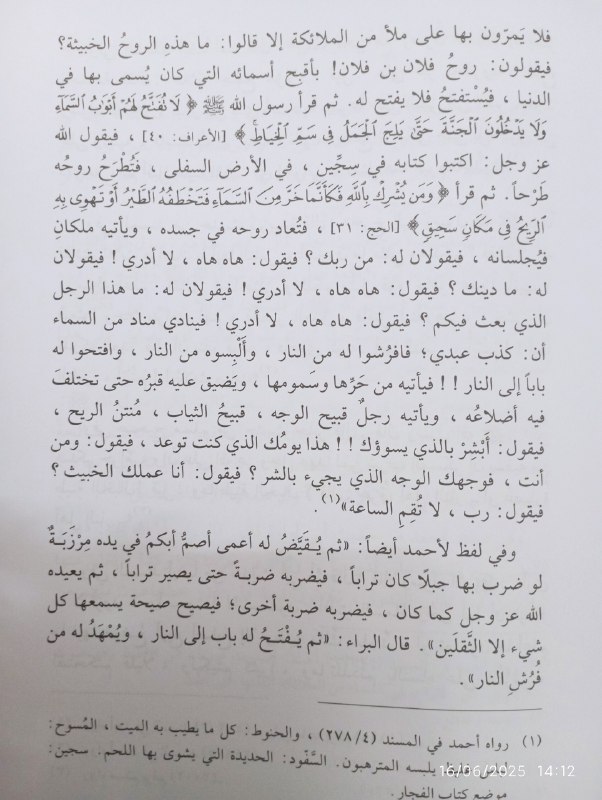 فلا يَمرّون بها على ملأ من الملائكة إلا قالوا: ما هذهِ الروحُ الخبيثة؟
فيقولون: روحُ فلان بن فلان! بأقبح أسمائه التي كان يُسمى بها في
الدنيا ، فيُسْتفتحُ فلا يفتح له. ثم قرأ رسول الله ﷺ ﴿ لَا تُفَتَّحُ لَهُمْ أَبْوَابُ السَّمَاءِ
وَلَا يَدْخُلُونَ الْجَنَّةَ حَتَّىٰ يَلِجَ الْجَمَلُ فِي سَمِّ الْخِيَاطِ ﴾ [الأعراف: ٤٠] ، فيقول الله
عز وجل: اكتبوا كتابه في سِجِّين ، في الأرض السفلى ، فتُطْرَحُ روحُه
طَرْحاً. ثم قرأ ﴿ وَمَن يُشْرِكْ بِاللَّهِ فَكَأَنَّمَا خَرَّ مِنَ السَّمَاءِ فَتَخْطَفُهُ الطَّيْرُ أَوْ تَهْوِي بِهِ
الرِّيحُ فِي مَكَانٍ سَحِيقٍ ﴾ [الحج: ٣١] ، فتُعاد روحه في جسده ، ويأتيه ملكانِ
فيُجلسانه ، فيقولان له: من ربك؟ فيقول: هاه هاه ، لا أدري! فيقولان
له: ما دينك؟ فيقول: هاه هاه ، لا أدري! فيقولان له: ما هذا الرجل
الذي بعث فيكم؟ فيقول: هاه هاه ، لا أدري! فينادي مناد من السماء
أن: كذب عبدي؛ فافرُشوا له من النار ، وأَلْبِسوه من النار ، وافتحوا له
باباً إلى النار!! فيأتيه من حَرِّها وسَمومها ، ويَضيق عليه قبرُه حتى تختلفَ
فيه أضلاعُه ، ويأتيه رجلٌ قبيح الوجه ، قبيحُ الثياب ، مُنتنُ الريح ،
فيقول: أَبْشِرْ بالذي يسوؤك!! هذا يومُك الذي كنت توعد ، فيقول: ومن
أنت ، فوجهك الوجه الذي يجيء بالشر؟ فيقول: أنا عملك الخبيث؟
فيقول: رب ، لا تُقِمِ الساعة»(١).
وفي لفظ لأحمد أيضاً: «ثم يُقَيَّضُ له أعمى أصمُّ أبكمُ في يده مِرْزَبَةٌ
لو ضرب بها جبلًا كان تراباً ، فيضربه ضربةً حتى يصير تراباً ، ثم يعيده
الله عز وجل كما كان ، فيضربه ضربة أخرى؛ فيصيح صيحة يسمعها كل
شيء إلا الثَّقلَين». قال البراء: «ثم يُفْتَحُ له باب إلى النار ، ويُمْهَدُ له من
فُرُشِ النار».
(١) رواه أحمد في المسند (٢٧٨/٤) ، والحنوط: كل ما يطيب به الميت ، المُسوح:
يلبسه المترهبون. السَّفّود: الحديدة التي يشوى بها اللحم. سجين:
موضع كتاب الفجار.
16/06/2025 14:12